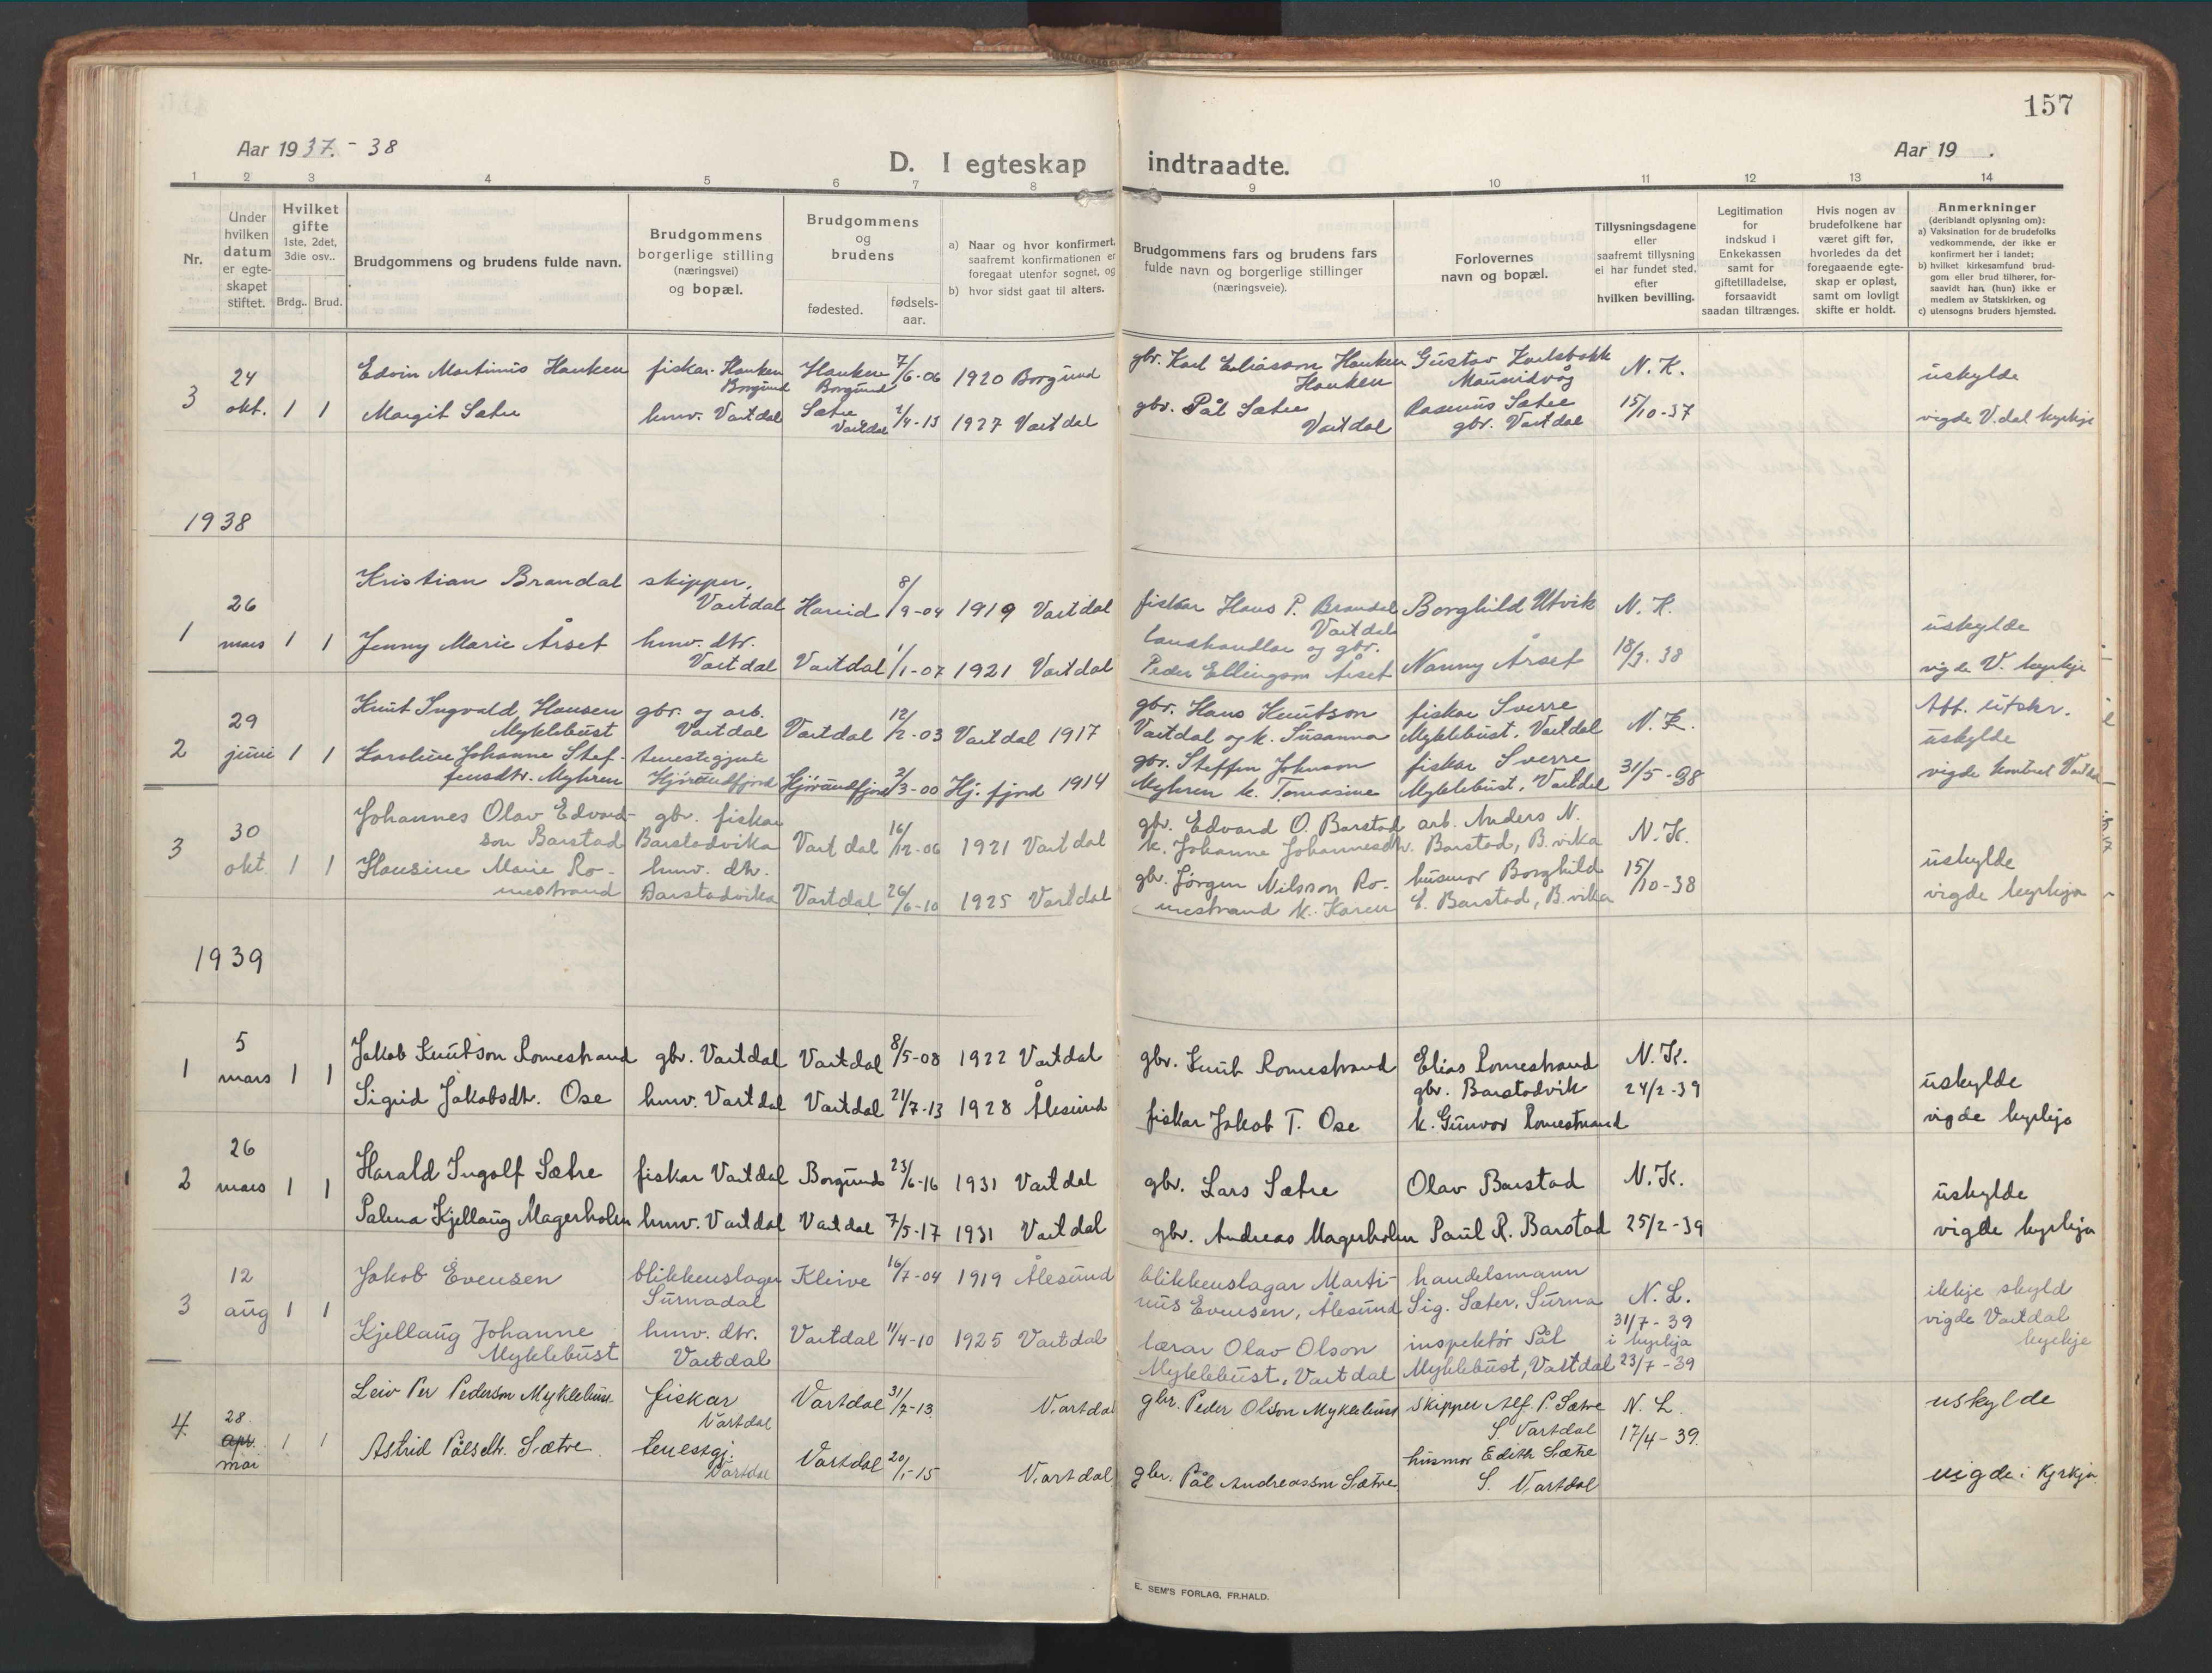 157
Aar 1937.-38
D. I egteskap indtraadte.
Aar 19 .
1 2 3 4 5 6 7 8 9 10 11 12 13 14
Nr.
Under hvilken datum er egte-skapet stiftet.
Hvilket gifte 1ste, 2det, 3die osv..
Brdg.. Brud.
Brudgommens og brudens fulde navn.
Brudgommens borgerlige stilling (næringsvei) og bopæl.
Brudgommens og brudens
fødested.
fødsels-aar.
a) Naar og hvor konfirmert, saafremt konfirmationen er foregaat utenfor sognet, og
b) hvor sidst gaat til alters.
Brudgommens fars og brudens fars fulde navn og borgerlige stillinger (næringsveie).
Forlovernes navn og bopæl.
Tillysningsdagene eller saafremt tillysning ei har fundet sted, efter hvilken bevilling.
Legitimation for indskud i Enkekassen samt for giftetilladelse, forsaavidt saadan tiltrænges.
Hvis nogen av brudefolkene har været gift før, hvorledes da det foregaaende egte-skap er opløst, samt om lovligt skifte er holdt.
Anmerkninger (deriblandt oplysning om):
a) Vaksination for de brudefolks vedkommende, der ikke er konfirmert her i landet;
b) hvilket kirkesamfund brud-gom eller brud tilhører, for-saavidt han (hun) ikke er medlem av Statskirken, og
c) utensogns bruders hjemsted.
3 24 okt. 1 1
Edvin Martinus Hanken fiskar. Hanken Borgund Hanken Borgund 7/6-06 1920 Borgund gbr. Karl Eliasson Hanken Hanken Gustav Karlsbakk N. K. uskylde
Margit Sætre hmv. Vartdal Sætre Vartdal 2/4-13 1927 Vartdal gbr. Pål Sætre Vartdal Rasmus Sætre gbr. Vartdal 15/10-37 vigde V.dal kyrkje
1938
1 26 mars 1 1
Kristian Brandal skipper, Vartdal Hareid 8/9-04 1919 Vartdal fiskar Hans P. Brandal Vartdal Borghild Utvik N. K. uskylde
Jenny Marie Årset hmv. dtr. Vartdal Vartdal 1/1-07 1921 Vartdal og gbr. Peder Ellingson Årset Nanny Årset 18/3.38 vigde V. kyrkje
2 29 juni 1 1
Knut Ingvald Hansen Myklebust gbr. og arb. Vartdal Vartdal 12/2-03 Vartdal 1917 gbr. Hans Knutson Vartdal og k. Susanna fiskar Sverre Myklebust, Vartdal N. K. Att. utskr. uskylde
Karoline Johanne Stef-fensdtr. Myhren tenestegjente Hjørundfjord Hjørundfjord 2/3-00 Hj. fjord 1914 gbr. Steffen Johnson Myhren k. Tomasine fiskar Sverre Myklebust, Vartdal 31/5-38 vigde kontoret Vartdal
3 30 okt. 1 1
Johannes Olav Edvard-son Barstad gbr. fiskar Barstadvika Vartdal 16/12-06 1921 Vartdal gbr. Edvard O. Barstad k. Johanne Johannesdtr. arb. Anders N. Barstad, B.vika N. K. uskylde
Hansine Marie Ro-mestrand hmv. dtr. Barstadvika Vartdal 26/6-10 1925 Vartdal gbr. Jørgen Nilsson Ro-mestrand k. Karen husmor Borghild E. Barstad, B.vika 15/10-38 vigde kyrkja
1939
1 5 mars 1 1
Jakob Knutson Romestrand gbr. Vartdal Vartdal 8/5-08 1922 Vartdal gbr. Knut Romestrand Elias Romestrand gbr. Barstadvik N. K. 24/2-39 uskylde
Sigrid Jakobsdtr. Ose hmv. Vartdal Vartdal 21/7-13 1928 Ålesund fiskar Jakob T. Ose k. Gunvor Romestrand vigde kyrkja
2 26 mars 1 1
Harald Ingolf Sætre fiskar Vartdal Borgund 23/6-16 1931 Vartdal gbr. Lars Sætre Olav Barstad N. K. uskylde
Palma Kjellaug Magerholm hmv. Vartdal Vartdal 7/5-17 1931 Vartdal gbr. Andreas Magerholm Paul R. Barstad 25/2-39 vigde kyrkja
3 12 aug 1 1
Jakob Evensen blikkenslager Surnadal Kleive 16/7-04 1919 Ålesund blikkenslagar Marti-nus Evensen, Ålesund handelsmann Sig. Sæter, Surna N. L. 31/7-39 ikkje skyld
Kjellaug Johanne Myklebust hmv. dtr. Vartdal Vartdal 11/4-10 1925 Vartdal lærar Olav Olson Myklebust, Vartdal inspektør Pål Myklebust, Vartdal i kyrkja 23/7-39 vigde Vartdal kyrkje
4. 28. apr. mai 1 1
Leiv Per Pederson Myklebust fiskar Vartdal Vartdal 31/7-13 Vartdal gbr. Peder Olson Myklebust Skipper Alf P. Sætre S. Vartdal N. L. 17/4-39. uskylde
Astrid Pålsdtr. Sætre tenestgj. Vartdal Vartdal 20/1-15 Vartdal gbr. Pål Andreasson Sætre husmor Edith Sætre S. Vartdal vigde i kyrkja
E. SEM'S FORLAG, FR.HALD.